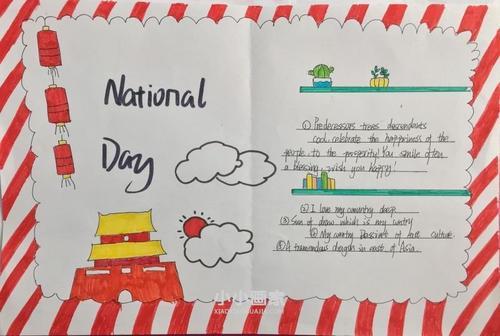 National
Day
① Predecessors trees descendants
cool, celebrate the happiness of the
people, to the prosperity! You smile often
a blessing, wish you happy!
② I love my country deep
③ Son of draw which is my
④ My country of culture.
⑤ A tremendous in east of Asia.
小小画家